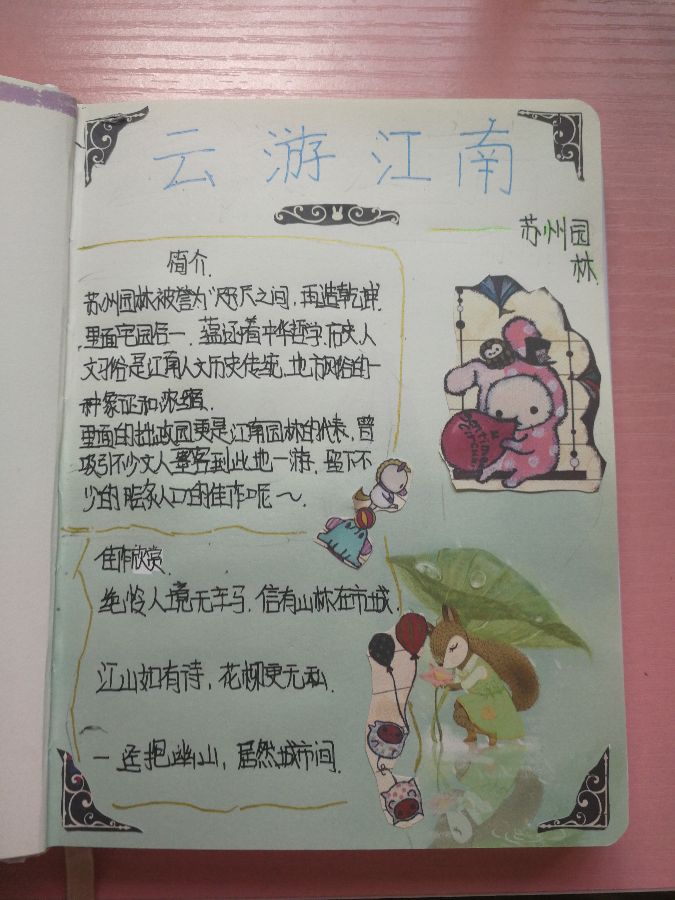 云游江南
苏州园
林
简介.
苏州园林被誉为"咫尺之间,再造乾坤.
里面宅园合一.蕴还着中华哲学.历史人
文习俗是江南人文历史传统.地方风俗的一
种象征和浓缩.
里面的拙政园更是江南园林的代表,曾
吸引不少文人墨客到此地一游.留下不
少的脍炙人口的佳作呢~.
佳作欣赏
绝怜人境无车马.信有山林在市城.
江山如有诗,花柳更无私.
一迳抱幽山,居然城市间.